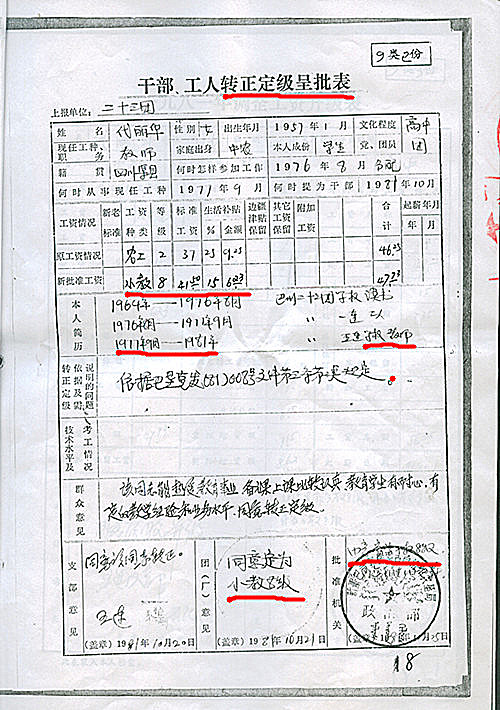 9类2份
干部、工人转正定级呈批表
上报单位：二十三团
姓名 代丽华 性别 女 出生年月 1957年1月 文化程度 高中
现任工种、职务 教师 家庭出身 中农 本人成份 学生 党、团员 团
籍贯 四川 何时怎样参加工作 1976年8月 分配
何时从事现任工种 1977年9月 何时提为干部 1981年10月
工资情况 新老标准 工资种类 等级 标准工资 生活补贴 % 金额 边疆津贴保留 其它工资保留 附加工资 合计 起薪年月 年 月
原工资情况 农工 2 37 25 9.25 46.25
新批准工资 小教 8 15 47.23
本人简历
1964年——1976年8月 巴州二十三团学校 读书
1976年8月——1977年9月 〃 一连 工人
1977年9月——1981年 〃 学校 教师
转正定级依据及需说明的问题
依据巴垦党发(81)008号文件第三章第 类 规定。
技术水平及考工情况
群众意见
该同志能热爱教育事业 备课上课比较认真 教育学生有耐心，有一定的教学经验和业务水平，同意转正定级。
支部意见 同意该同志转正。
(盖章) 1981年10月20日
团(厂)意见 同意定为小教8级
(盖章) 1981年10月21日
批准机关
政治部
(盖章)
18